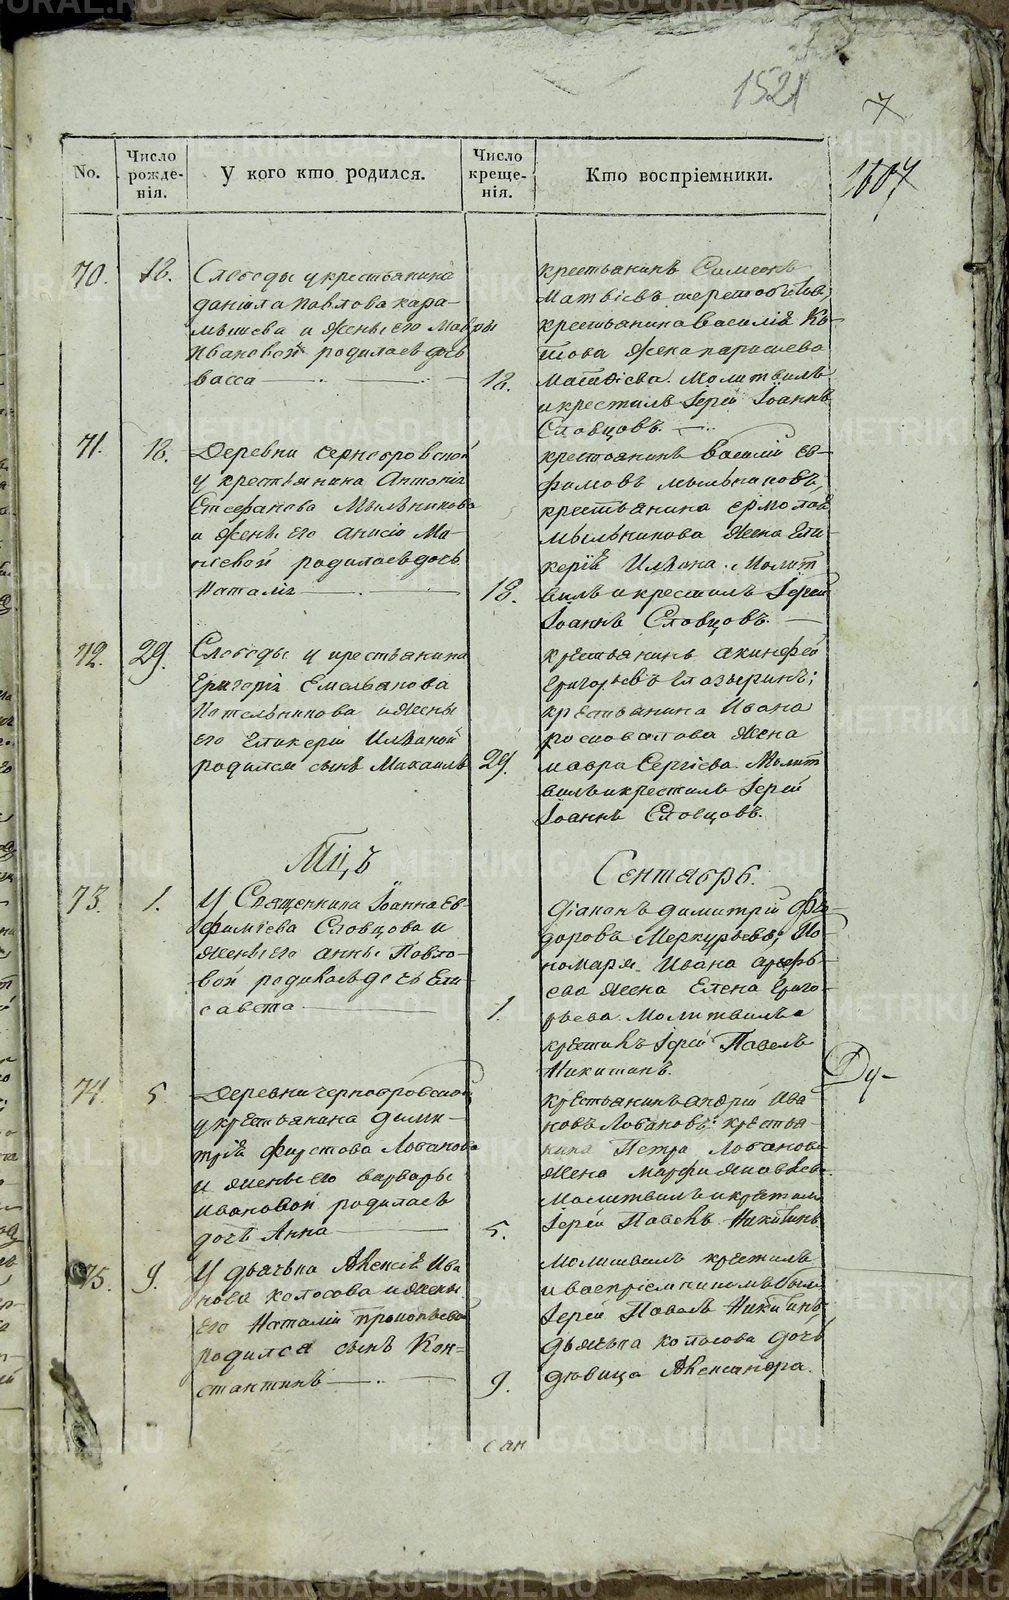 1521
7
1607
No.
Число рожде-нія.
У кого кто родился.
Число креще-нія.
Кто воспріемники.
70.
18.
Слободы у крестьянина
данiила павлова кара-
мышева и жены его Мавры
Ивановой родилась дочь
васса
18.
крестьянинъ Симеонъ
Матвіевъ
крестьянина василія Ко-
това жена параскева
Матвіева. Молитвилъ
и крестилъ Іерей Іоаннъ
Словцовъ.
71.
18.
Деревни черноbровской
у крестьянина Антонія
Стефанова Мыльникова
и жены его Анисіи Ма-
родилась дочь
Наталія
18.
крестьянинъ василій ев-
фимовъ мыльниковъ,
крестьянина ермолая
мыльникова жена Гли-
керія Ильина. Молит
вилъ и крестилъ Іерей
Іоаннъ Словцовъ.
72.
29.
Слободы у крестьянина
Григорія Емельянова
Котельникова и жены
его Гликеріи Ильиной
родился сынъ Михаилъ
29.
крестьянинъ акинфей
Григорьевъ Глазыринъ;
крестьянина Ивана
жена
мавра Сергіева. Молит
вилъ и крестилъ Іерей
Іоаннъ Словцовъ.
Мцъ
Сентябрь.
73.
1.
У Священника Іоанна Ев-
фиміева Словцова и
жены его анны Павло-
вой родилась дочь Ели-
савета
1.
діаконъ димитрій Фе-
доровъ Меркурьевъ; По-
номаря Ивана арефь-
ева жена Елена Григо-
рьева. Молитвилъ и
крестилъ Іерей Павелъ
Никитинъ.
74.
5
Деревни черноbровской
у крестьянина дими-
трія Лобанова
и жены его варвары
ивановой родилась
дочь Анна
5.
крестьянинъ андрей Ива
новъ Лобановъ; крестья-
нина Петра Лобанова
жена марфа
Молитвилъ и крестилъ
Іерей Павелъ Никитинъ
75.
9.
У дьячька Алексія Ива
нова колосова и жены
его Наталіи прокопьевой
родился сынъ Кон-
стантинъ
9.
Молитвилъ крестилъ
и воспріемникомъ былъ
Іерей Павелъ Никитинъ,
дьячька колосова дочь
дѣвица Александра.
METRIKI.GASU-URAL.RU